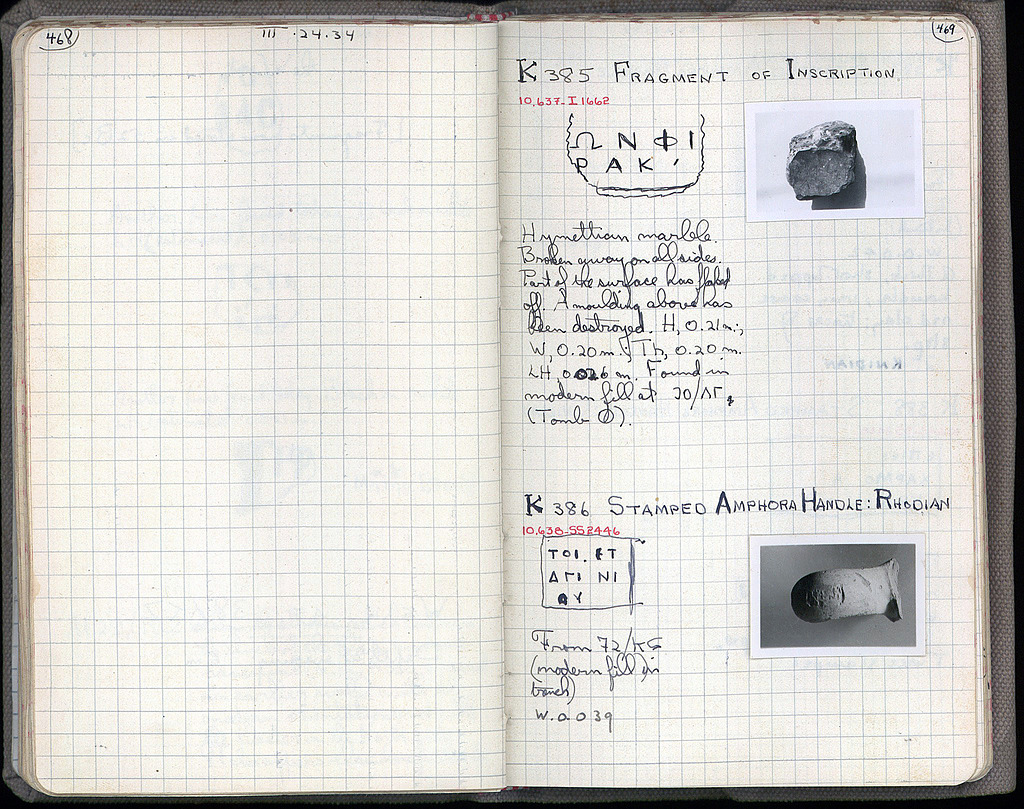 468
III.24.34
469
K 385 FRAGMENT OF INSCRIPTION
10,637-I 1662
Ω Ν Φ Ι
Ρ Α Κ
Hymettian marble.
Broken away on all sides.
Part of the surface has flaked
off. A moulding above has
been destroyed. H, 0.21m.;
W, 0.20 m.; Th, 0.20 m.
LH, 0.026 m. Found in
modern fill at
(Tomb Φ).
K 386 STAMPED AMPHORA HANDLE: RHODIAN
10,638-SS2446
From 72/ΚΕ
(modern fill) in
W. 0.039